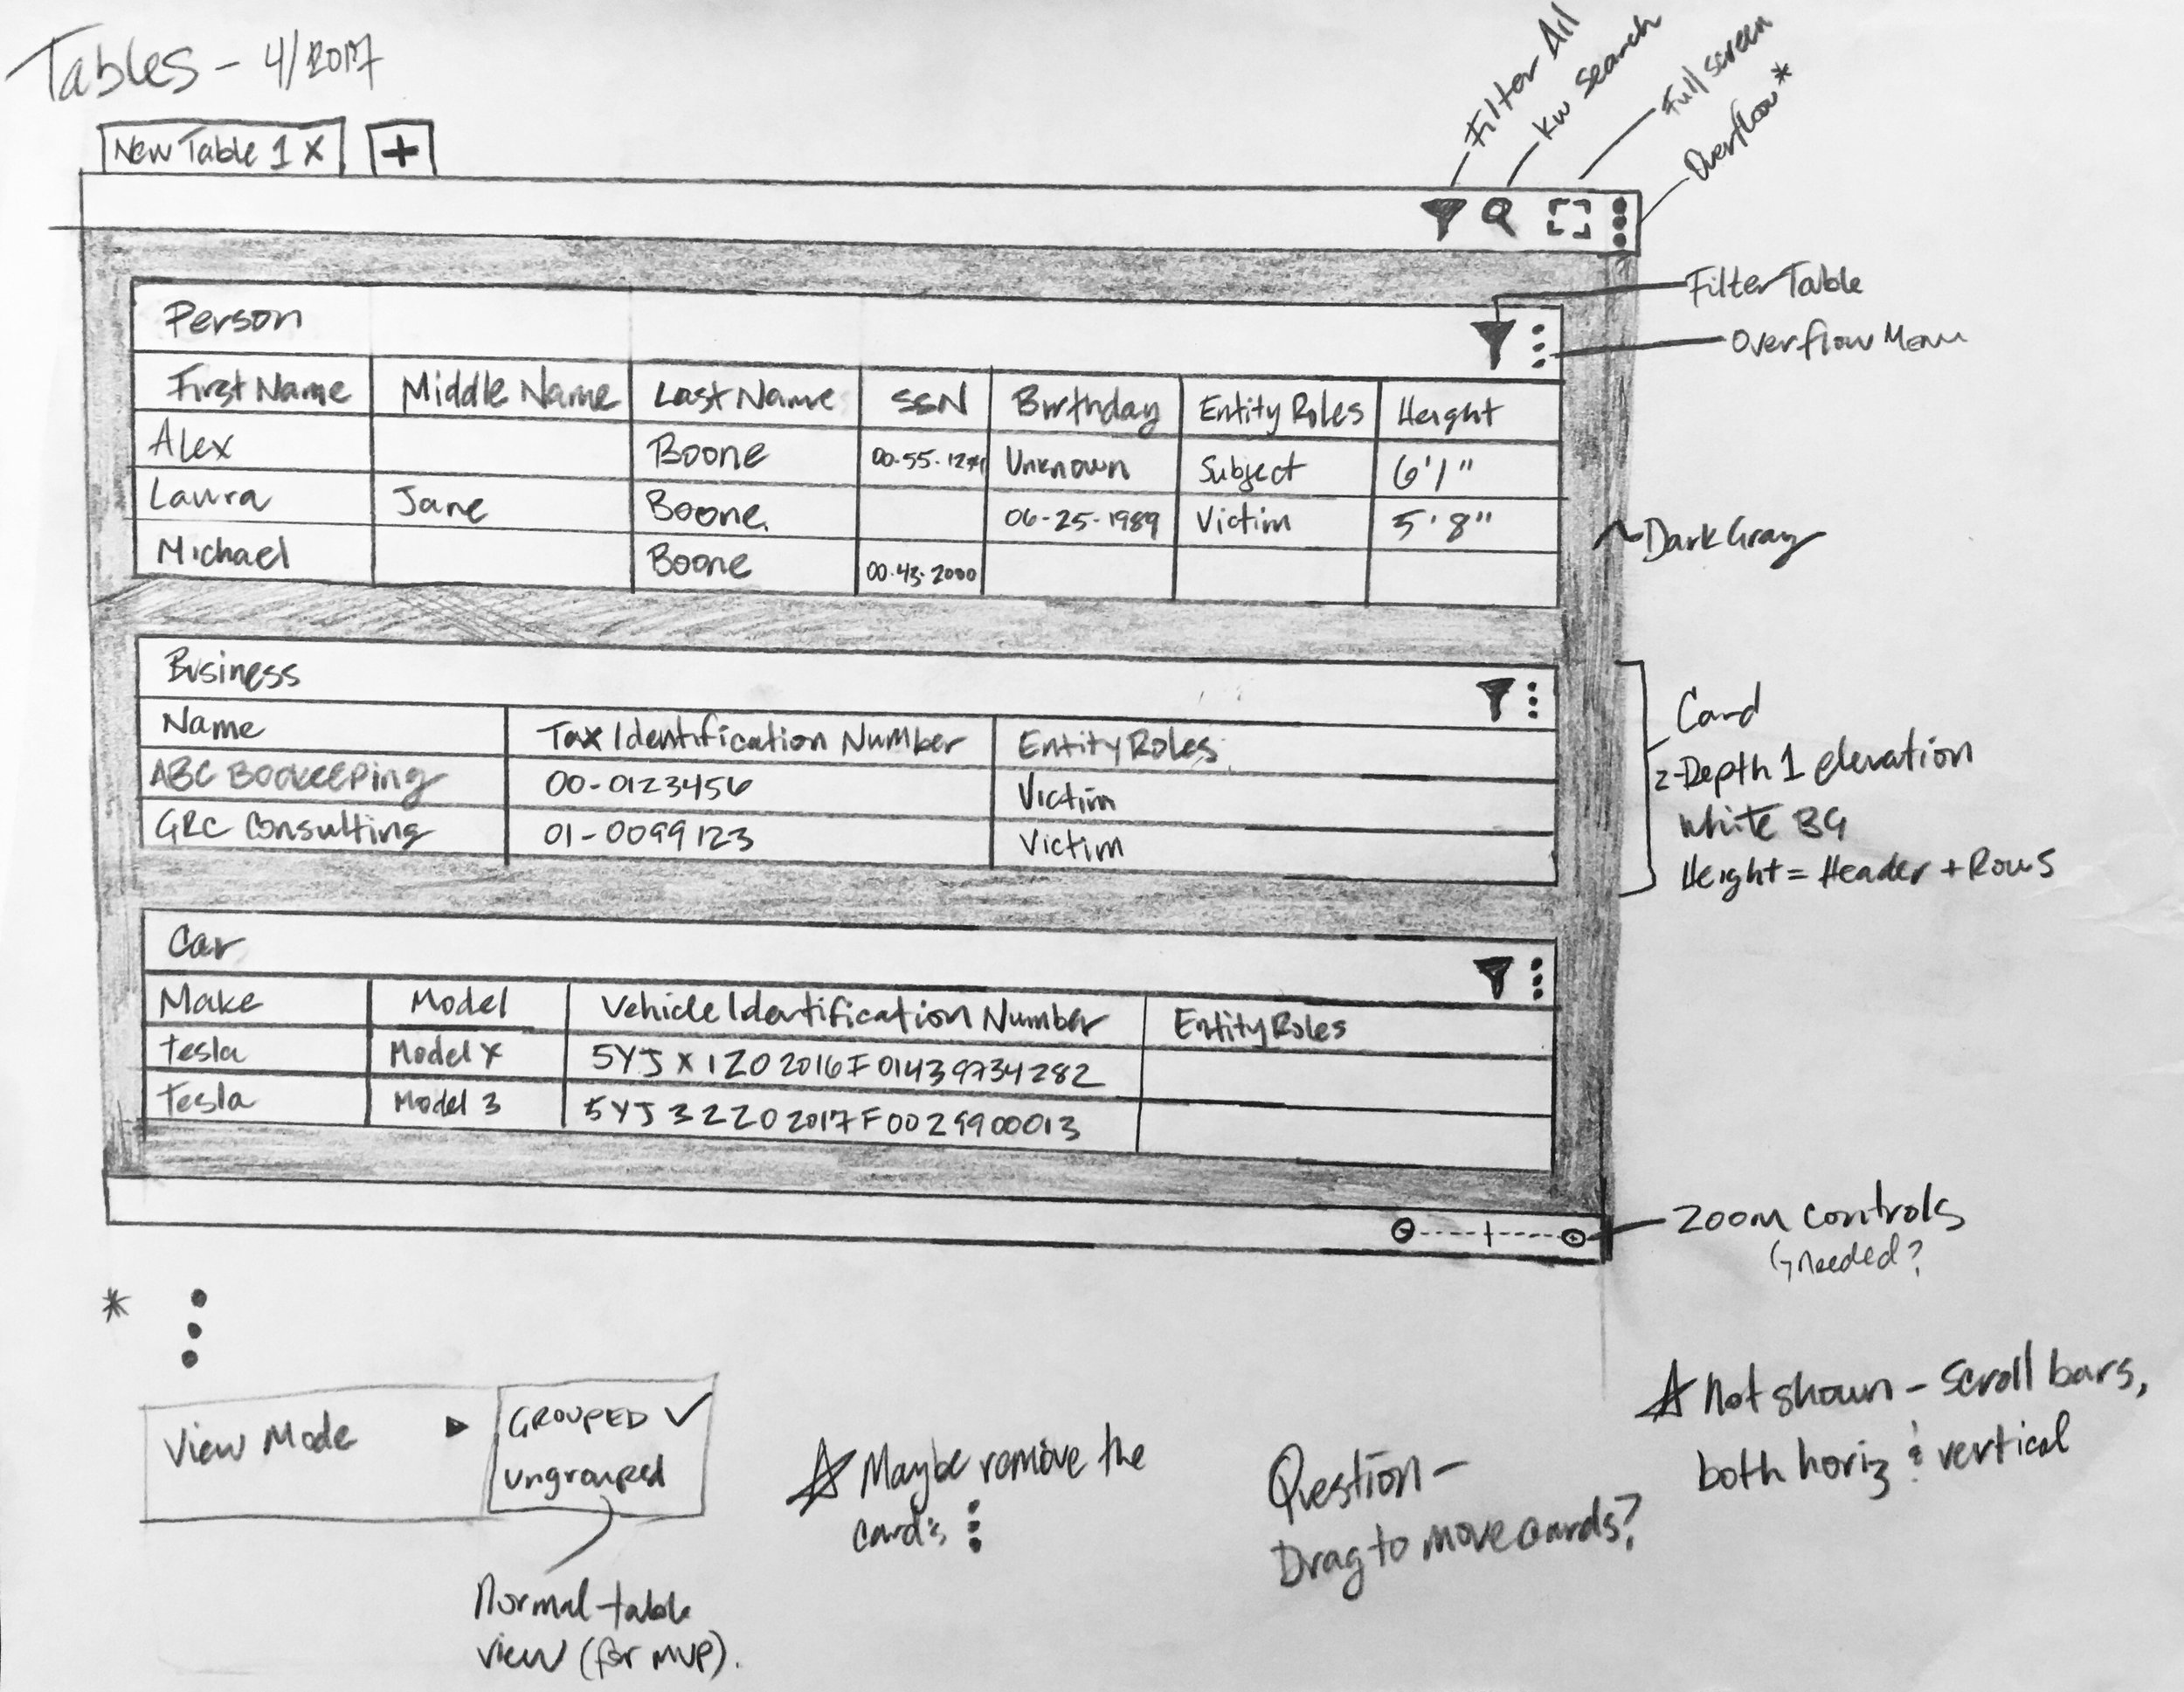 Tables - 4/2017
Filter All
KW Search
Full screen
Overflow*
New Table 1 X
+
Filter Table
Person
Overflow Menu
First Name Middle Name Last Name SSN Birthday Entity Roles Height
Alex Boone Unknown Subject 6'1"
Laura Jane Boone. 06-25-1989 Victim 5'8"
Dark Gray
Michael Boone 00.43.2000
Business
Card
Name Tax Identification Number Entity Roles
z-Depth 1 elevation
ABC Bookeeping 00-0123456 Victim
White BG
GRC Consulting 01-0099123 Victim
Height = Header + Rows
Car
Make Model Vehicle Identification Number Entity Roles
Tesla Model X 5YJX1Z02016F01439734282
Tesla Model 3 5YJ32Z02017F0029900013
Zoom controls
needed?
*
View Mode ▶ GROUPED ✓
ungrouped
Normal table
view (for MVP).
☆ Maybe remove the
card's ⋮
Question -
Drag to move cards?
☆ Not shown - scroll bars,
both horiz & vertical